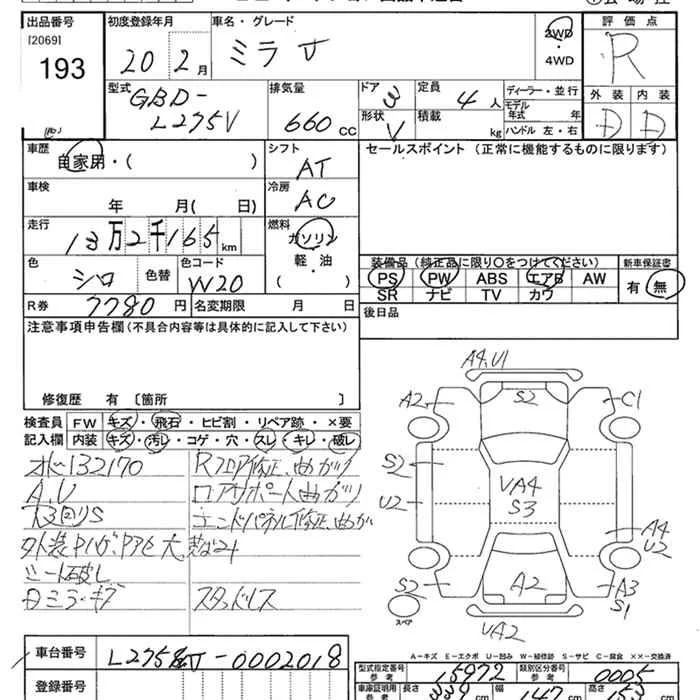 出品番号
[2069]
193
初度登録年月
20 2月
車名・グレード
ミラ V
2WD
・
4WD
評価点
R
型式
GBD-
L275V
排気量
660 CC
ドア
3
形状
V
定員
4 人
積載
kg
ディーラー・並行
モデル
年式 年
ハンドル 左・右
外装 内装
D D
車歴
自家用・( )
シフト
AT
セールスポイント (正常に機能するものに限ります)
車検
年 月( 日)
冷房
AC
走行
13万2千165km
燃料
ガソリン
軽・油
( )
色
シロ
色替
色コード
W20
装備品 (純正品に限り○をつけてください)
PS PW ABS エアB AW
SR ナビ TV カワ
新車保証書
有 無
R券 7780 円
名変期限 月 日
後日品
注意事項申告欄(不具合内容等は具体的に記入して下さい)
修復歴 有 〔箇所 〕
検査員 FW キズ・飛石・ヒビ割・リペア跡・×要
記入欄 内装 キズ・汚レ・コゲ・穴・スレ・キレ・破レ
132170
A.U
外装
シート破レ
ミラーキズ
Rフロア修正、曲ガリ
ロアサポート曲ガリ
エンドパネル修正、曲ガリ
スタッドレス
A4,U1
A2
S2
C1
S2
VA4
S3
U2
A4
U2
S2
A2
A3
S1
スペア
VA2
A-キズ E-エクボ U-凹み W-補修跡 S-サビ C-腐食 ××-交換済
車台番号
-0002018
型式指定番号
参考
15972
類別区分番号
参考
0005
登録番号
車庫証明用
参考
長さ
幅
147 cm
高さ
cm